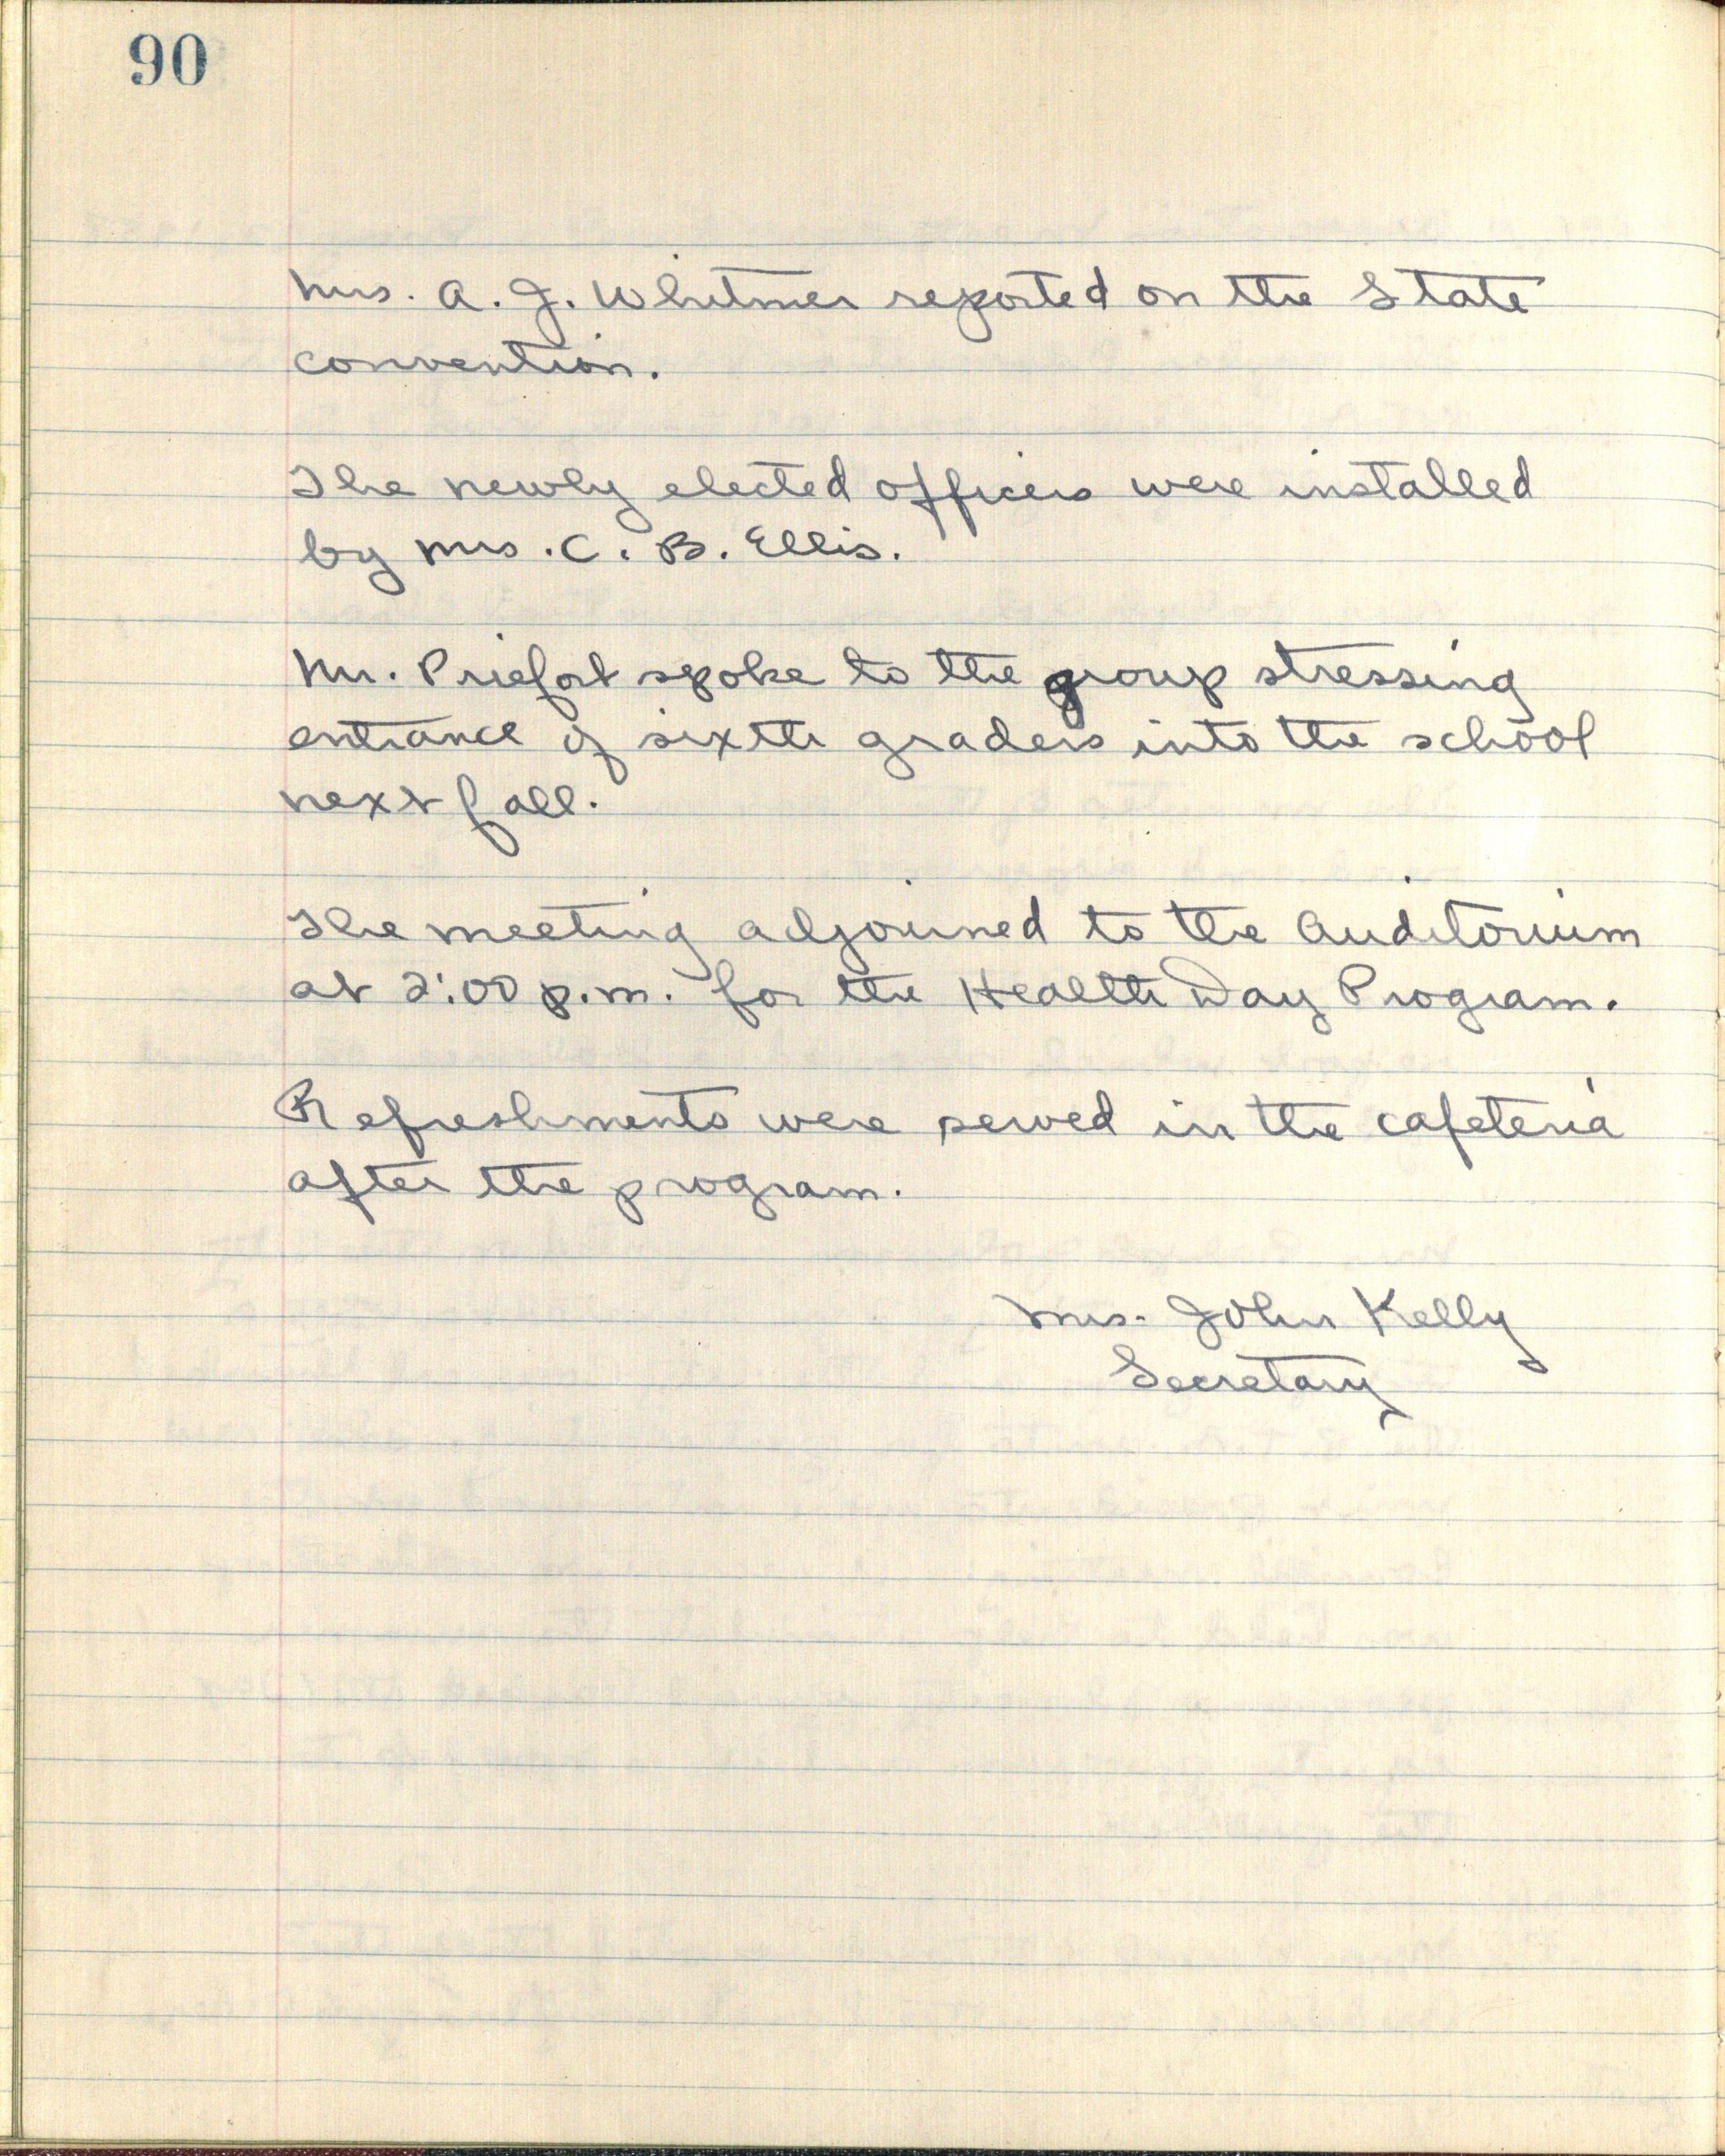 90
Mrs. A. J. Whitmer reported on the State
convention.
The newly elected officers were installed
by Mrs. C. B. Ellis.
Mr. Priefort spoke to the group stressing
entrance of sixth graders into the school
next fall.
The meeting adjourned to the Auditorium
at 2:00 p.m. for the Health Day Program.
Refreshments were served in the cafeteria
after the program.
Mrs. John Kelly
Secretary